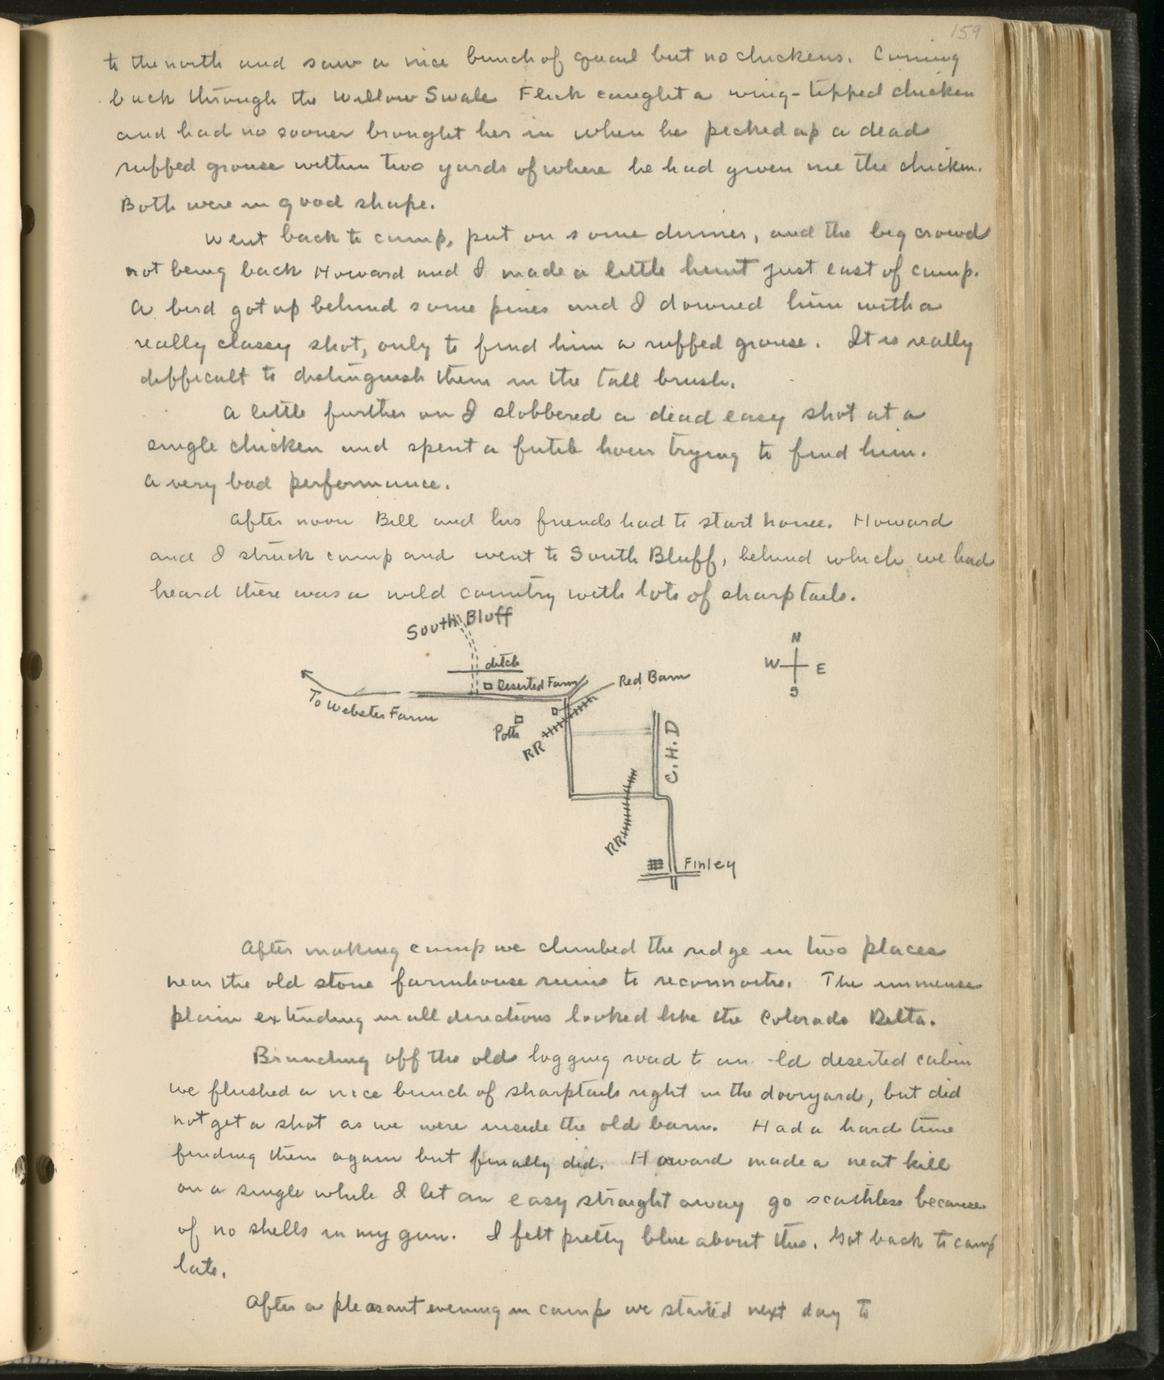 159
to the north and saw a nice bunch of quail but no chickens. Coming
back through the Willow Swale Flick caught a wing-tipped chicken
and had no sooner brought her in when he picked up a dead
ruffed grouse within two yards of where he had given me the chicken.
Both were in good shape.
Went back to camp, put on some dinner, and the big crowd
not being back Howard and I made a little hunt just east of camp.
A bird got up behind some pines and I downed him with a
really classy shot, only to find him a ruffed grouse. It is really
difficult to distinguish them in the tall brush.
A little further on I slobbered a dead easy shot at a
single chicken and spent a futile hour trying to find him.
A very bad performance.
After noon Bill and his friends had to start home. Howard
and I struck camp and went to South Bluff, behind which we had
heard there was a wild country with lots of sharptails.
South Bluff
ditch
Deserted Farm
Red Barn
To Webster Farm
Potts
RR
C.H.D
N
W E
S
RR
Finley
After making camp we climbed the ridge in two places
near the old stone farmhouse ruins to reconnoitre. The immense
plain extending in all directions looked like the Colorado Delta.
Branching off the old logging road to an -ld deserted cabin
we flushed a nice bunch of sharptails right in the dooryard, but did
not get a shot as we were inside the old barn. Had a hard time
finding them again but finally did. Howard made a neat kill
on a single while I let an easy straight away go scathless because
of no shells in my gun. I felt pretty blue about this. Got back to camp
late.
After a pleasant evening in camp we started next day to